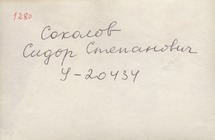 1280
Соколов
Сидор Степанович
У-20434